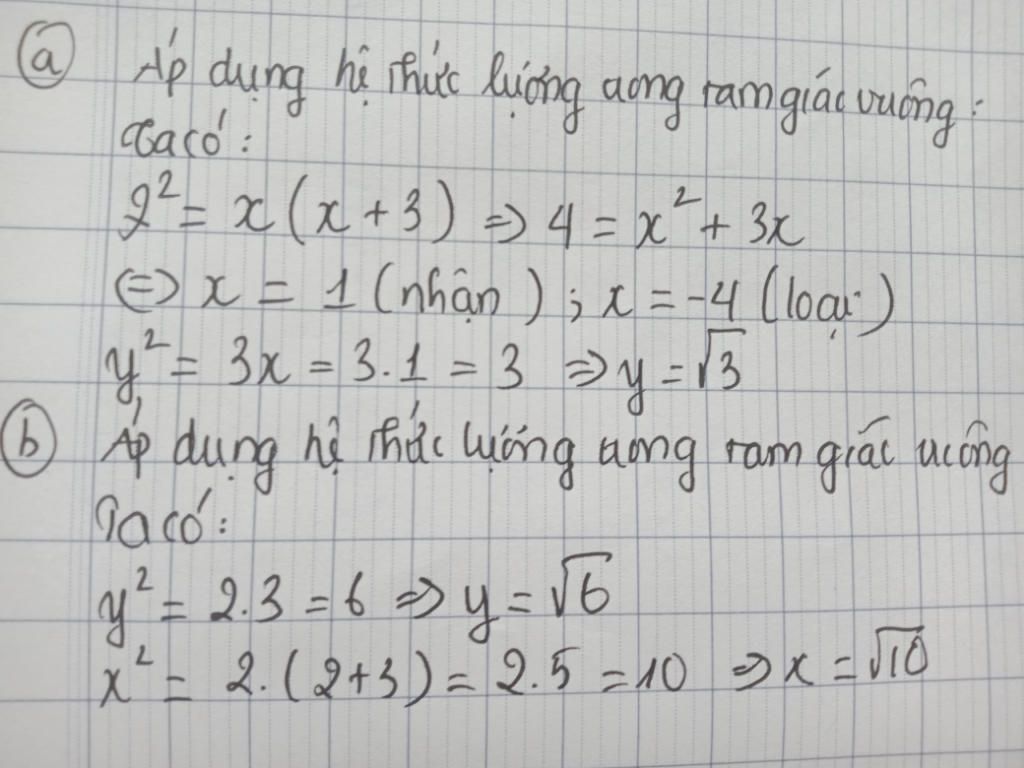 ⓐ Áp dụng hệ thức lượng trong tam giác vuông:
Ta có:
2² = x(x+3) => 4 = x² + 3x
<=> x = 1 (nhận); x = -4 (loại)
y² = 3x = 3.1 = 3 => y = √3
ⓑ Áp dụng hệ thức lượng trong tam giác vuông
Ta có:
y² = 2.3 = 6 => y = √6
x² = 2.(2+3) = 2.5 = 10 => x = √10